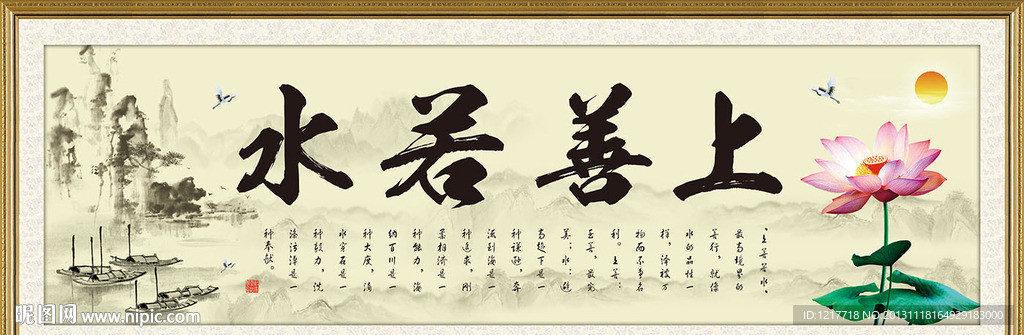 上善若水
“上善若水,
最高境界的
善行,就像
水的品性一
样,泽被万
物而不争名
利。上善:
至善,最完
美;水:避
高趋下是一
种谦逊,奔
流到海是一
种追求,刚
柔相济是一
种能力,海
纳百川是一
种大度,滴
水穿石是一
种毅力,洗
涤污浊是一
种奉献。
昵图网 www.nipic.com
ID:1217718 NO:20131118164929183000